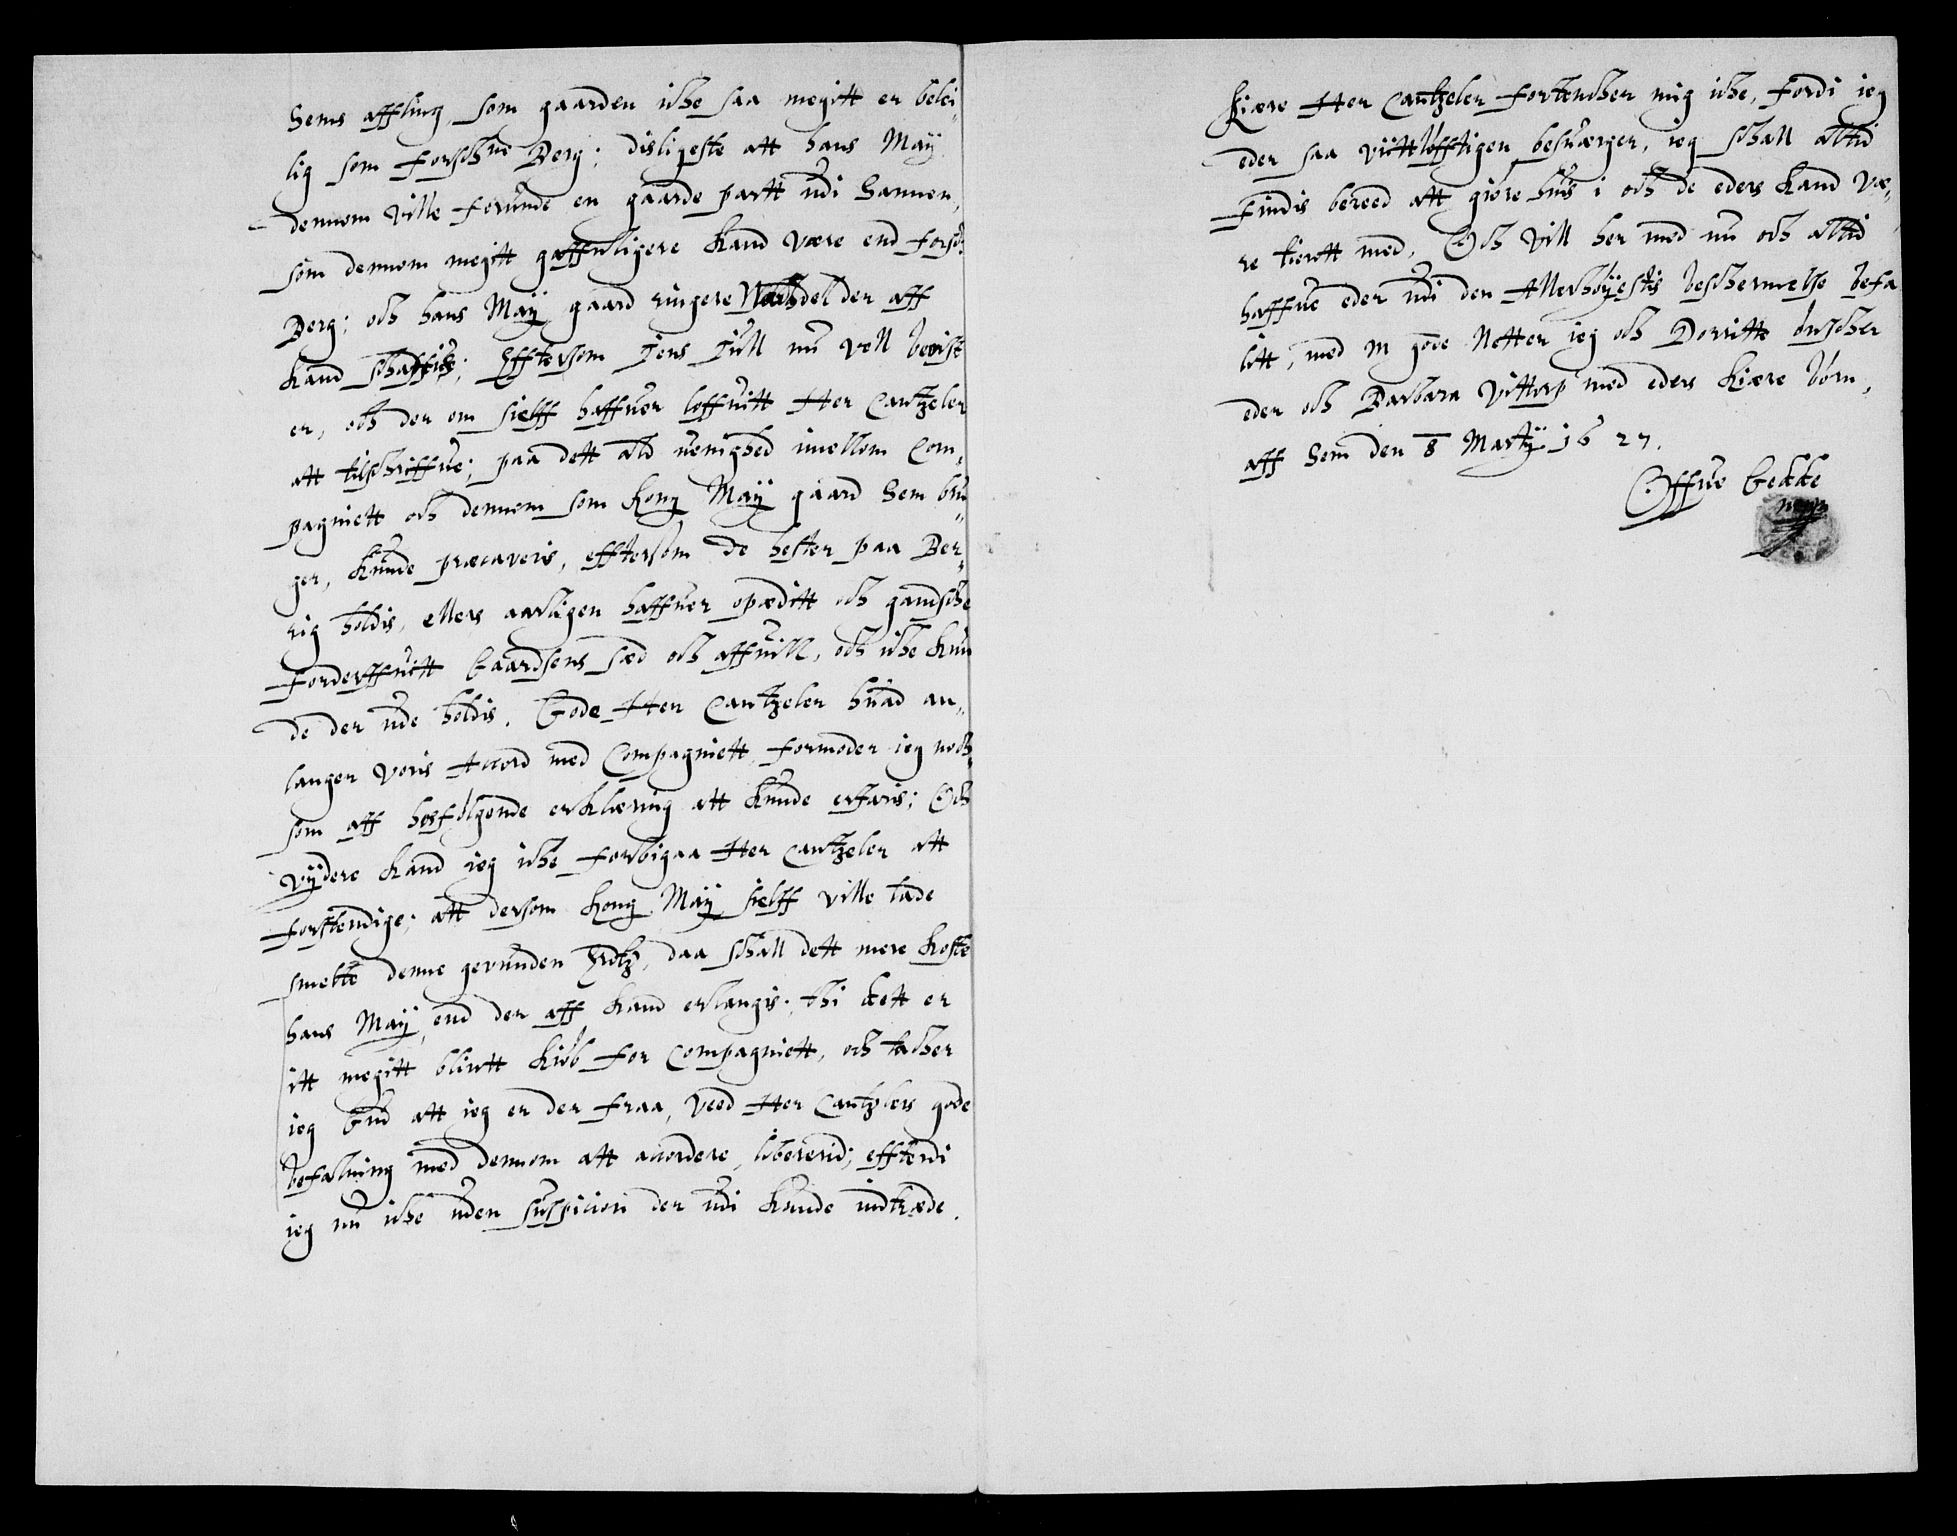 Sems affling, som gaarden iche saa megitt er belei,
lig som forschne Berg; disligeste att hans May
dennom ville forunde en gaarde partt udi Sannen,
som dennom megitt gaffnligere kand være end forsch:
Berg; och hans May gaard ringere Widerdel der aff
kand schaffis; Efftersom Jens Jull nu vell bevist
er, och der om sielff haffuer loffuitt Her Cantzeler
att tilschriffue; paa dett ald uenighed imellom Com,
pagniett och dennom som Kong May gaard Sem bru,,
ger, kunde præcaveris, efftersom de hester paa Ber,,
rig holdis, ellers aarligen haffuer opæditt och gandsche
forderffuitt Gaardsens sæd och affuill, och iche kun
de der ude holdis. Gode Her Cantzeler huad an,,
langer voris Accord med Compagniett, formoder ieg noch,
som aff hosfølgende erklæring att kunde erfaris; Och
vÿdere kand ieg iche forbigaa Her Cantzeler att
forstendige; att dersom Kong May sielff ville lade
smelte denne gevunden Ertz, daa schall dett mere koste
hans May end der aff kand erlangis; thi dett er
itt megitt blintt kiøb for Compagniett, och tacher
ieg Gud att ieg er der fraa, veed Her Cantzlers gode
befalning med dennom att accordere, libererid; effterdi
ieg nu iche uden suspicion der udi kunde indtræde.
Kiære Her Cantzeler fortencher mig iche, fordi ieg
eder saa viittløfftigen besværger, ieg schall alltid
findis bereed att giøre huis i och de eders kand væ,
re tientt med, Och vill her med nu och alltid
haffue eder udi den Allerhøyestis beschermelse befa
litt, med m gode Netter ieg och Doritte ønscher
eder och Barbara Vittorp med eders kiære børn,
aff Sem den 8 Martÿ 1627.
Offue Gedde